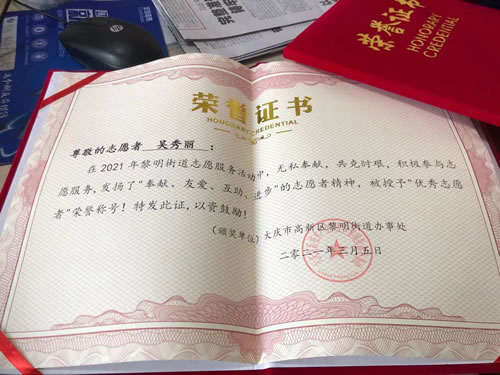 荣誉证书
HONORARY CREDENTIAL
荣誉证书
HONORARY CREDENTIAL
尊敬的志愿者 吴秀丽：
在2021年黎明街道志愿服务活动中，无私奉献，共克时艰，积极参与志
愿服务，发扬了“奉献、友爱、互助、进步”的志愿者精神，被授予“优秀志愿
者”荣誉称号！特发此证，以资鼓励！
（颁奖单位）大庆市高新区黎明街道办事处
二零二一年三月五日